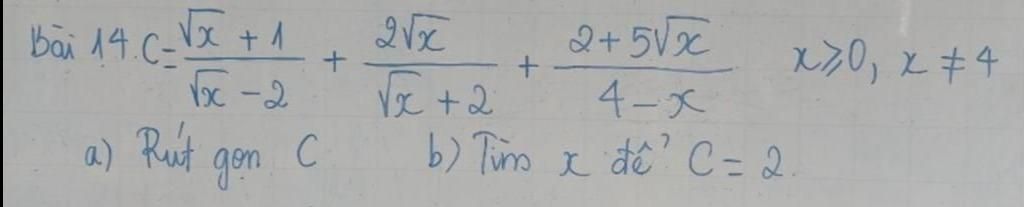 Bài 14. C = \frac{\sqrt{x} + 1}{\sqrt{x} - 2} + \frac{2\sqrt{x}}{\sqrt{x} + 2} + \frac{2 + 5\sqrt{x}}{4 - x} x ⩾ 0, x ≠ 4
a) Rút gọn C b) Tìm x để C = 2.